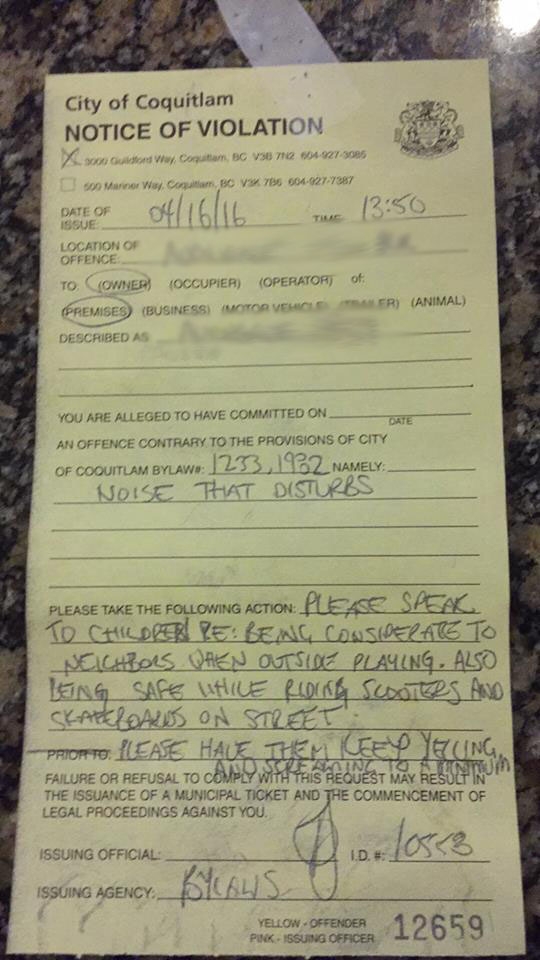 City of Coquitlam
NOTICE OF VIOLATION
X 3000 Guildford Way, Coquitlam, BC V3B 7N2 604-927-3085
500 Mariner Way, Coquitlam, BC V3K 7B6 604-927-7387
DATE OF ISSUE: 04/16/16 TIME: 13:50
LOCATION OF OFFENCE:
TO: (OWNER) (OCCUPIER) (OPERATOR) of:
(PREMISES) (BUSINESS) (MOTOR VEHICLE) (TRAILER) (ANIMAL)
DESCRIBED AS
YOU ARE ALLEGED TO HAVE COMMITTED ON
DATE
AN OFFENCE CONTRARY TO THE PROVISIONS OF CITY
OF COQUITLAM BYLAW#: 1233, 1932 NAMELY:
NOISE THAT DISTURBS
PLEASE TAKE THE FOLLOWING ACTION: PLEASE SPEAK
TO CHILDREN RE: BEING CONSIDERATE TO
NEIGHBORS WHEN OUTSIDE PLAYING. ALSO
BEING SAFE WHILE RIDING SCOOTERS AND
SKATEBOARDS ON STREET.
PRIOR TO: PLEASE HAVE THEM KEEP YELLING
AND SCREAMING TO A MINIMUM
FAILURE OR REFUSAL TO COMPLY WITH THIS REQUEST MAY RESULT IN
THE ISSUANCE OF A MUNICIPAL TICKET AND THE COMMENCEMENT OF
LEGAL PROCEEDINGS AGAINST YOU.
ISSUING OFFICIAL: I.D. #: 10553
ISSUING AGENCY: BYLAWS
YELLOW - OFFENDER
PINK - ISSUING OFFICER 12659